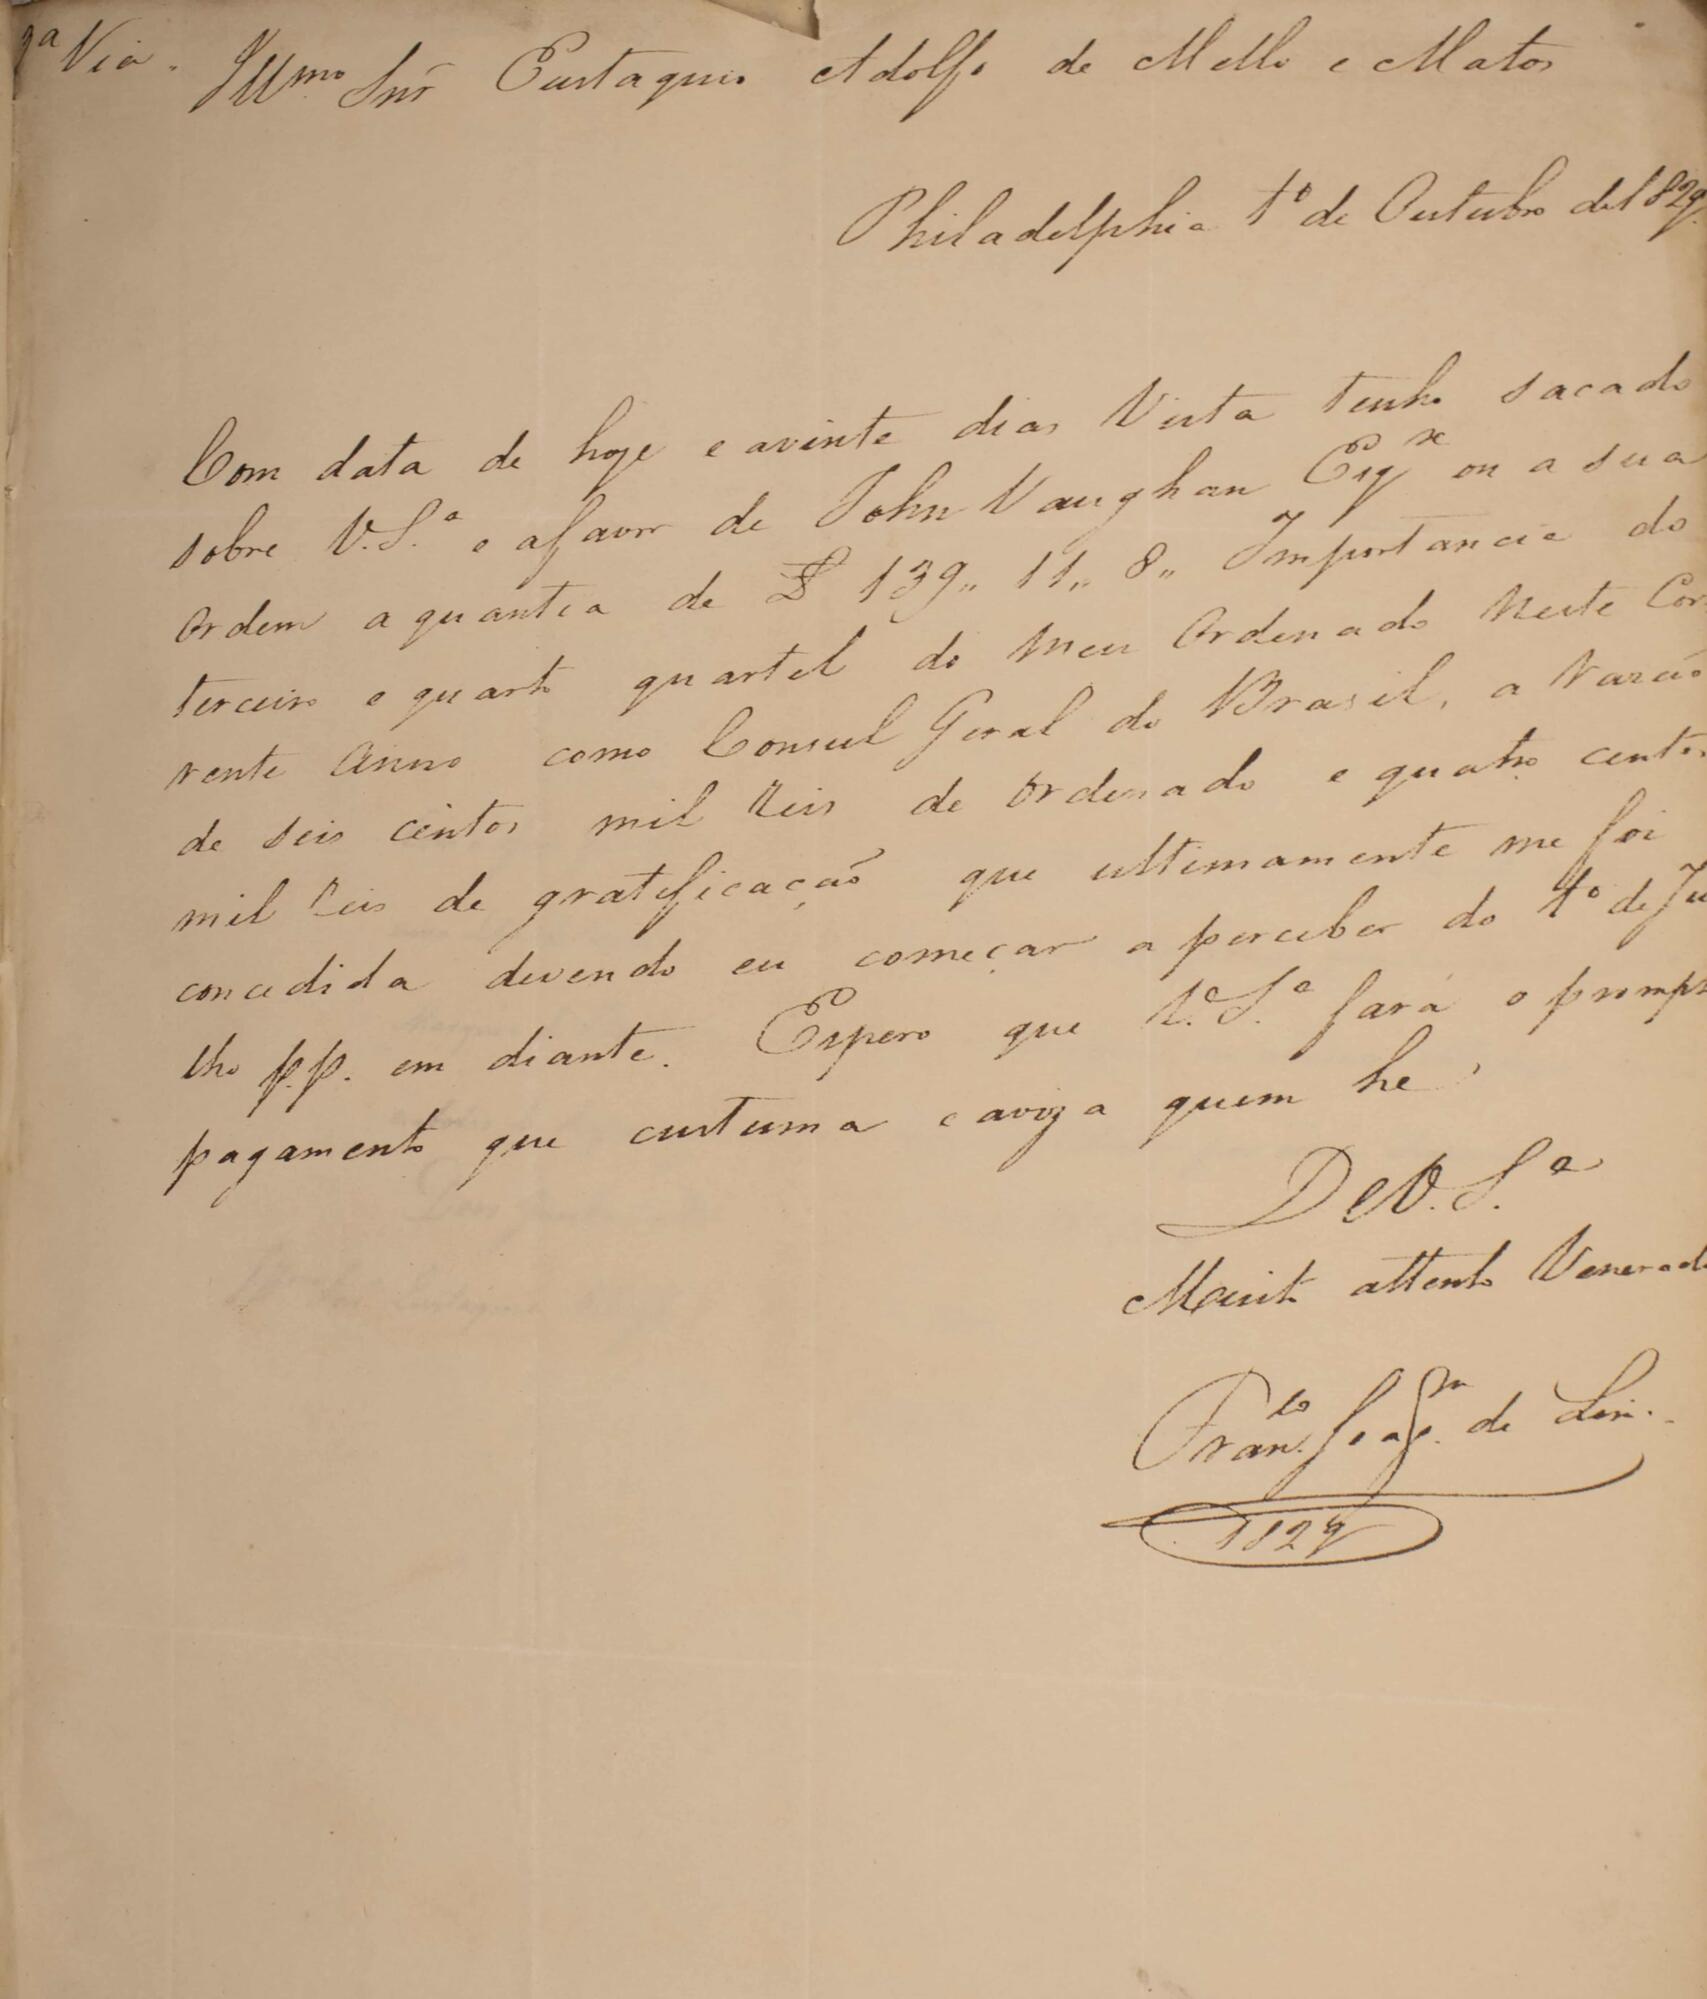 ª Via. Illmo Snr Eustaquio Adolfo de Mello e Mattos
Philadelphia 1º de Outubro de 1829.
Com data de hoje e avinte dias Vista tenho sacado
sobre V.S.ª e afavor de John Vaughan Esqre ou a sua
Ordem aquantia de £ 139,, 11,, 8,, Importancia do
terceiro e quarto quartel do Meu Ordenado Neste Cor-
rente Anno como Consul Geral do Brasil, a razaõ
de seis centos mil Reis de Ordenado e quatro centos
mil Reis de gratificaçaõ que ultimamente me foi
concedida devendo eu começar a perceber do 1º de Ju
lho p.p. em diante. Espero que V.S.ª fará o prompt
pagamento que custuma e aviza quem he
De V.S.ª
Muito attento Venerado
Franco Joaqm de Lim.
1829